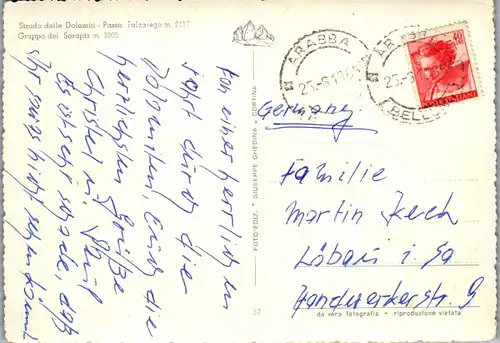 Strada delle Dolomiti - Passo Falzarego m. 2117
Gruppo del Sorapis m. 3205
Von einer herrlichen
Fahrt durch die
Dolomiten, Euch die
herzlichsten Grüße
Christel u.
Es ist sehr schade, daß
Ihr sowas nicht sehen könnt
FOTO-EDIZ. - GIUSEPPE GHEDINA - CORTINA
ARABBA
25-6-19
AR
25-6
BELL
40
POSTE ITALIANE
Germany
Familie
Martin Zech
Löbau i. Sa
Handwerkerstr. 9
37
da vera fotografia - riproduzione vietata